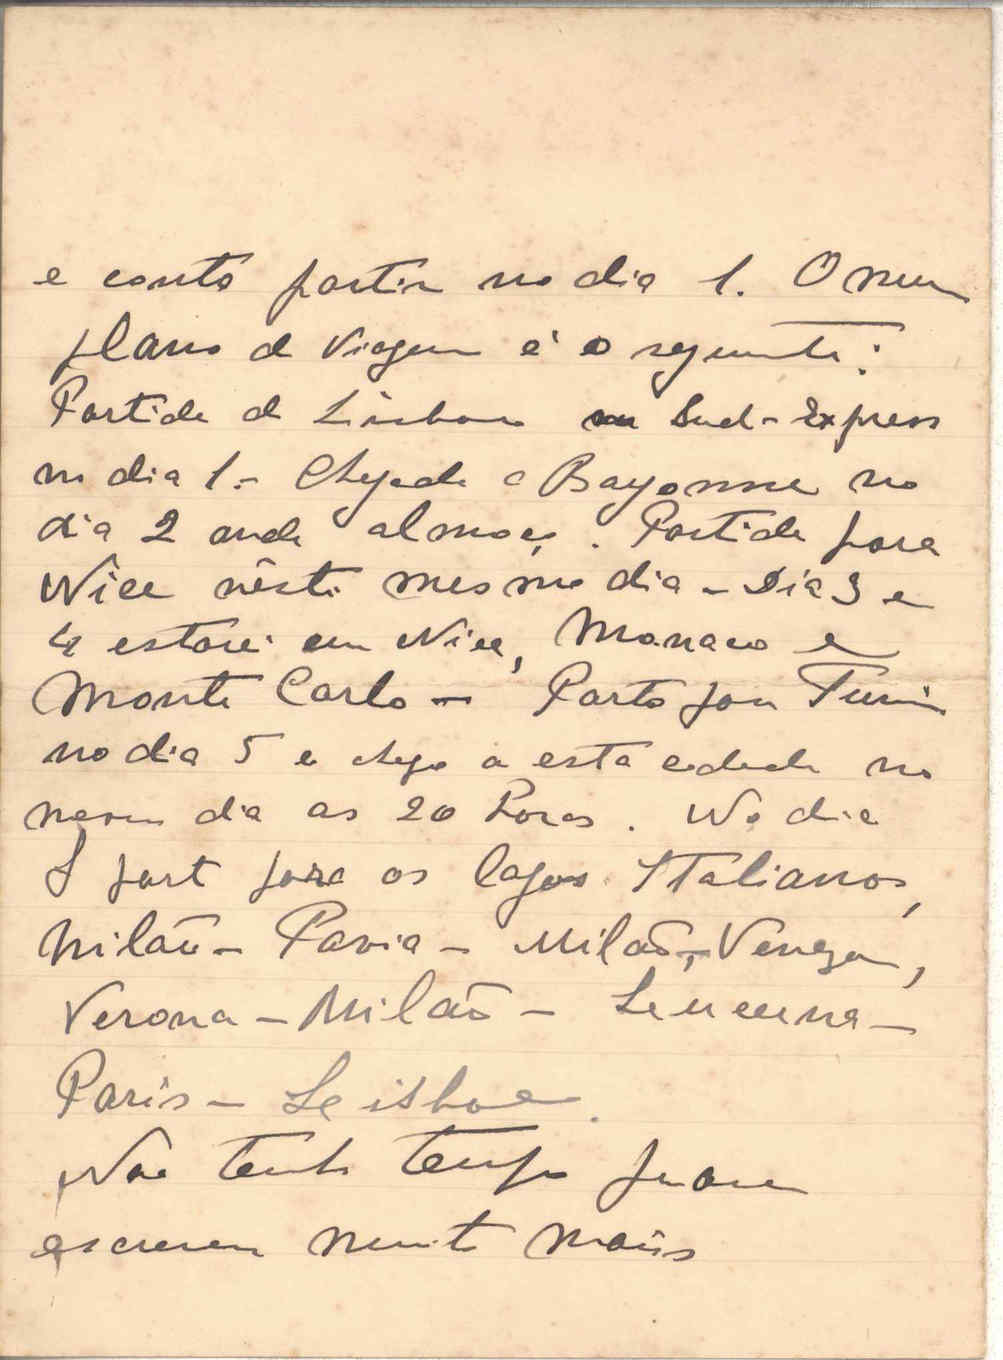 e conto partir no dia 1. O meu
plano de viagem é o seguinte:
Partida de Lisboa no Sud-Express
no dia 1.- Chegada a Bayonne no
dia 2 onde almoço. Partida para
Nice nêste mesmo dia - Dia 3 e
4 estarei em Nice, Monaco e
Monte Carlo - Parto para Turim
no dia 5 e chego a esta cidade no
mesmo dia as 20 horas. No dia
parto para os lagos Italianos,
Milão - Pavia - Milão, Veneza,
Verona - Milão - Lucerna -
Paris - Lisboa.
Não tenho tempo para
escrever muito mais